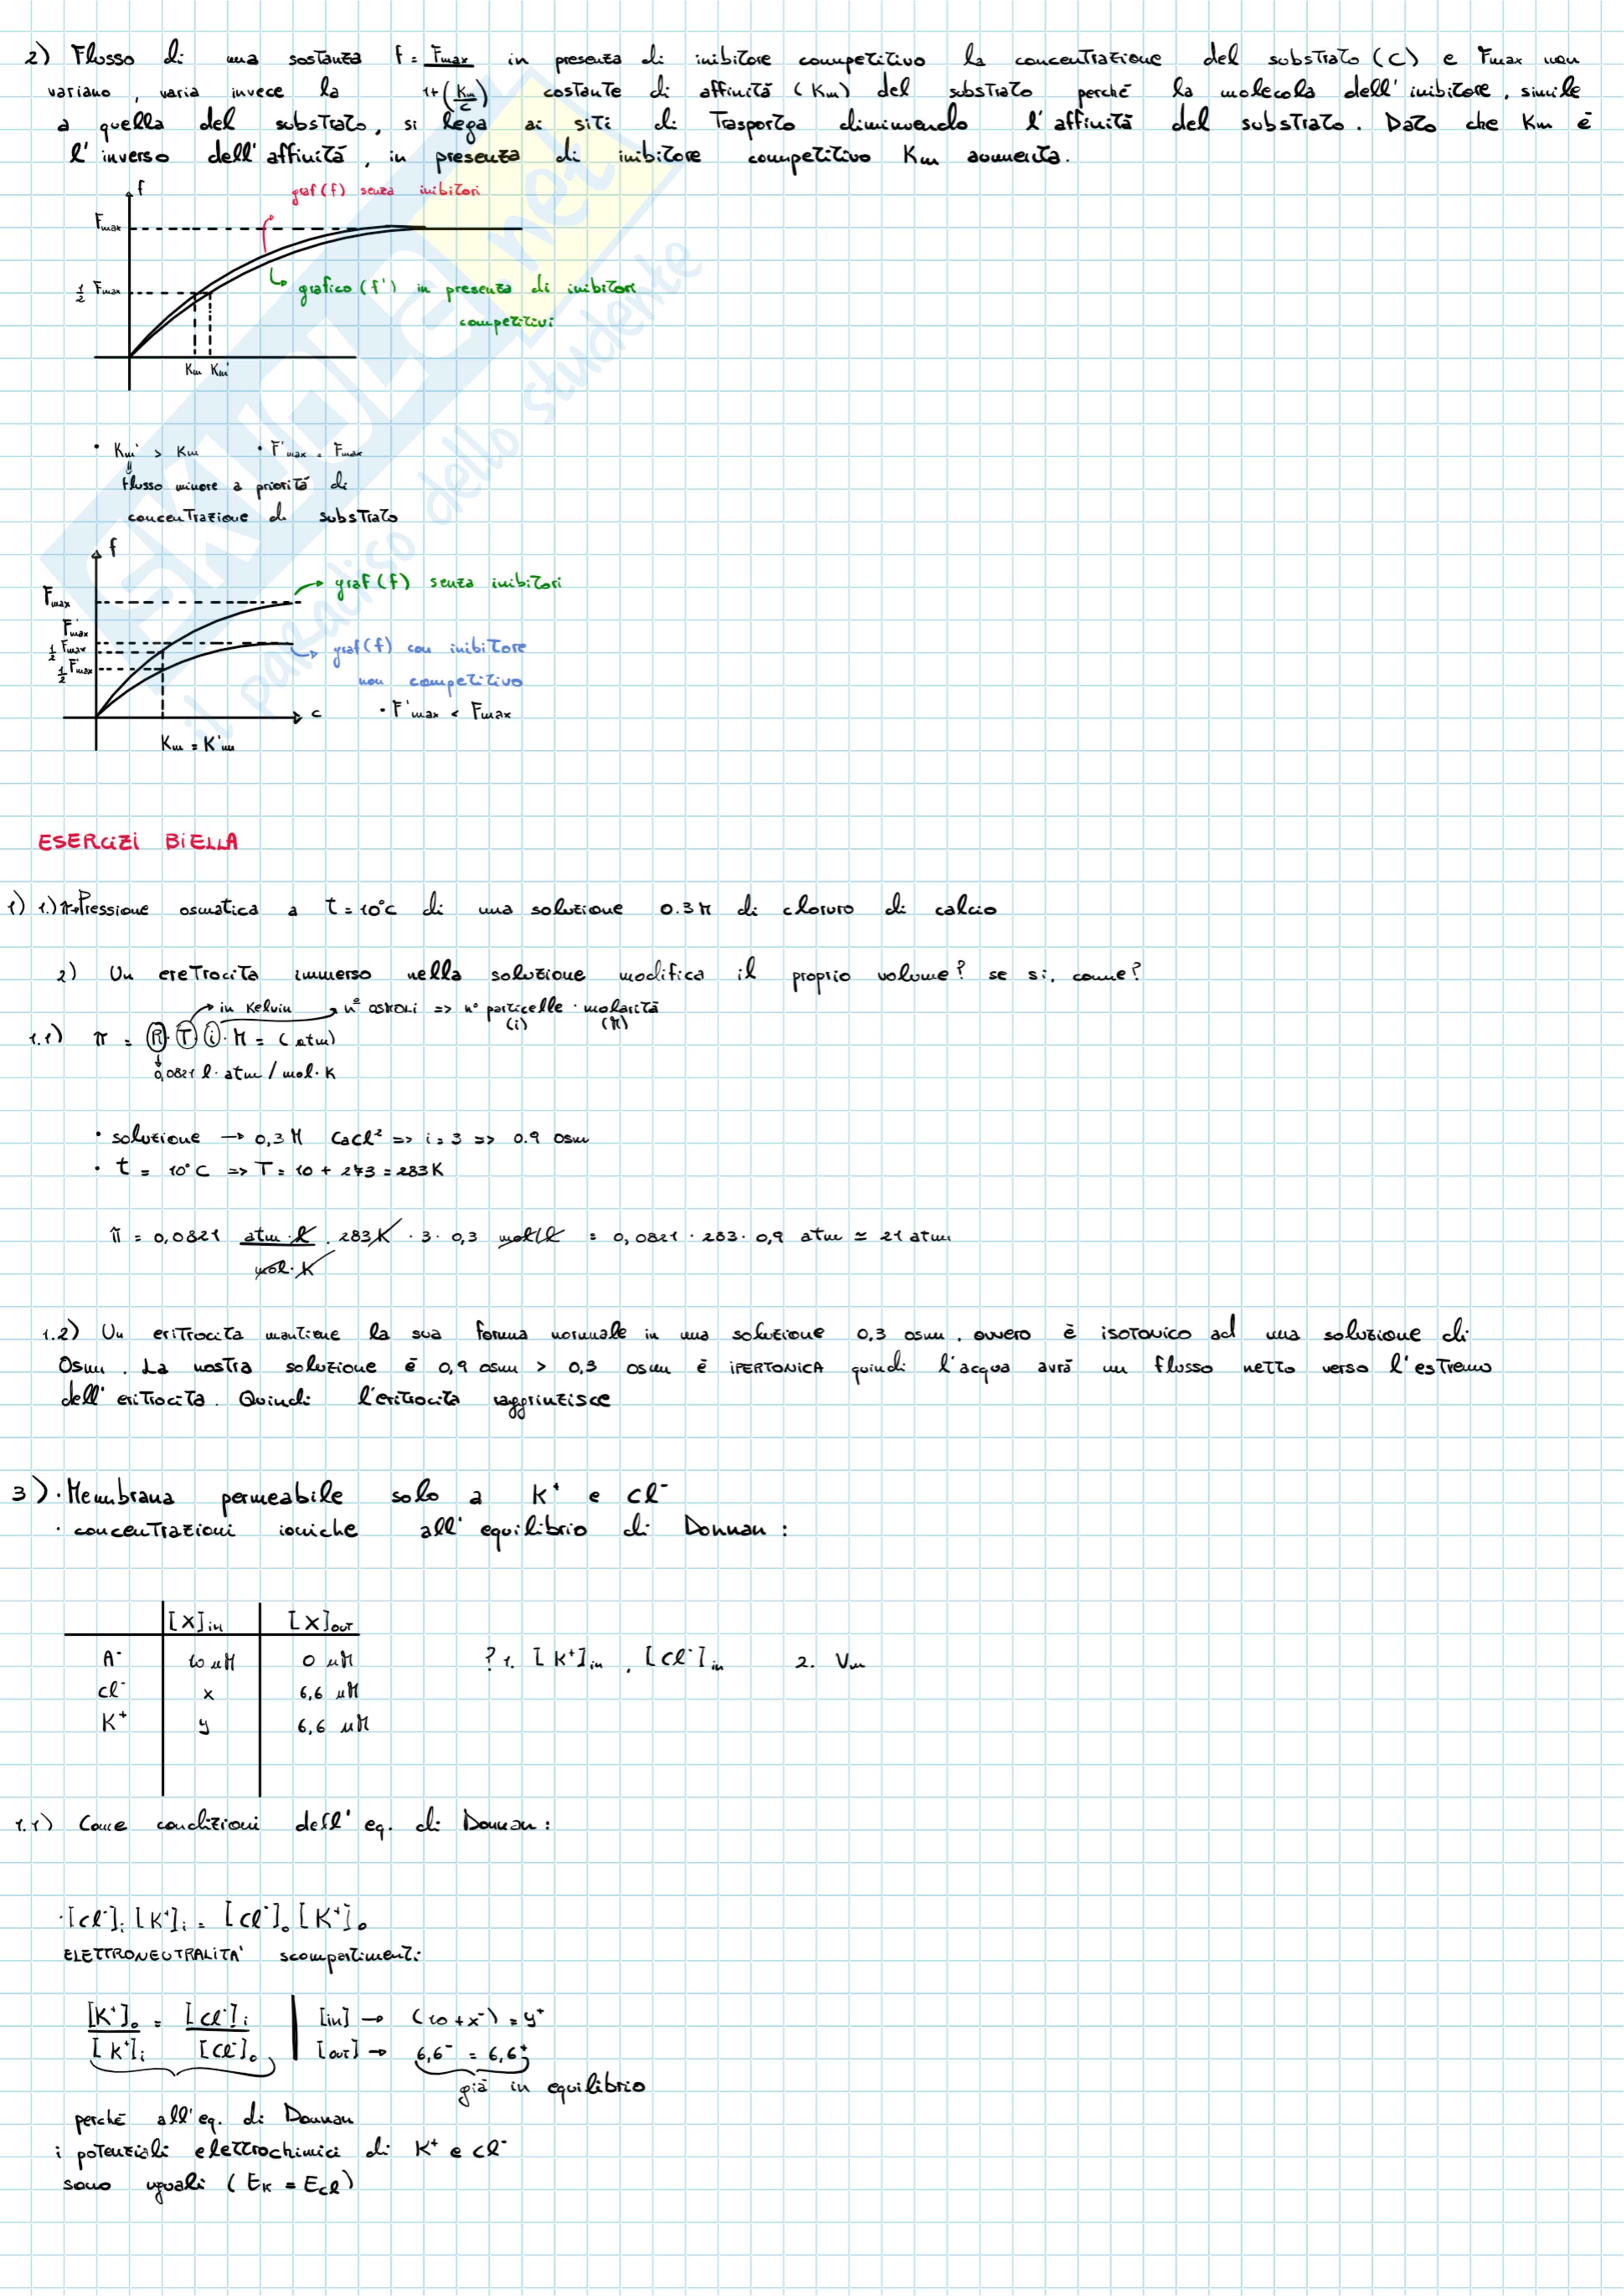 2) Flusso di una sostanza f = Fmax in presenza di inibitore competitivo la concentrazione del substrato (C) e Fmax non
variano, varia invece la 1+(Km/C) costante di affinità (Km) del substrato perché la molecola dell'inibitore, simile
a quella del substrato, si lega ai siti di Trasporto diminuendo l'affinità del substrato. Dato che Km è
l'inverso dell'affinità, in presenza di inibitore competitivo Km aumenta.
f
graf(f) senza inibitori
Fmax
1/2 Fmax
grafico (f') in presenza di inibitori
competitivi
Km Km'
• Km' > Km • F'max = Fmax
flusso minore a priorità di
concentrazione di substrato
f
graf(f) senza inibitori
Fmax
F'max
1/2 Fmax
1/2 F'max
graf(f) con inibitore
non competitivo
c
• F'max < Fmax
Km = K'm
ESERCIZI BIELLA
1) 1.) π→Pressione osmotica a t = 10°C di una soluzione 0.3M di cloruro di calcio
2) Un eretrocita immerso nella soluzione modifica il proprio volume? se si, come?
→ in Kelvin → n° OSMOLI => n° particelle · molarità
(i) (M)
1.1) π = R·T·i·M = (atm)
0,0821 l·atm/mol·K
• soluzione → 0,3 M CaCl² => i = 3 => 0.9 Osm
• t = 10°C => T = 10 + 273 = 283K
π = 0,0821 atm·l/mol·K · 283K · 3 · 0,3 mol/l = 0,0821 · 283 · 0,9 atm ≃ 21 atm
1.2) Un eritrocita mantiene la sua forma normale in una soluzione 0.3 osm, ovvero è isotonico ad una soluzione di
Osm. La nostra soluzione è 0,9 osm > 0,3 osm è iPERTONICA quindi l'acqua avrà un flusso netto verso l'estremo
dell'eritrocita. Quindi l'eritrocita raggrinzisce
3) · Membrana permeabile solo a K⁺ e Cl⁻
· concentrazioni ioniche all'equilibrio di Donnan:
[X]in [X]out
A⁻ 10 mM 0 mM ? 1. [K⁺]in, [Cl⁻]in 2. Vm
Cl⁻ x 6,6 mM
K⁺ y 6,6 mM
1.1) Come condizioni dell'eq. di Donnan:
·[Cl⁻]i [K⁺]i = [Cl⁻]o [K⁺]o
ELETTRONEUTRALITA' scompartimenti
[K⁺]o/[K⁺]i = [Cl⁻]i/[Cl⁻]o | [in] → (10 + x⁻) = y⁺
[out] → 6,6⁻ = 6,6⁺
già in equilibrio
perché all'eq. di Donnan
i potenziali elettrochimici di K⁺ e Cl⁻
sono uguali (EK = ECl)
SKUOLA.net
il paradiso dello studente